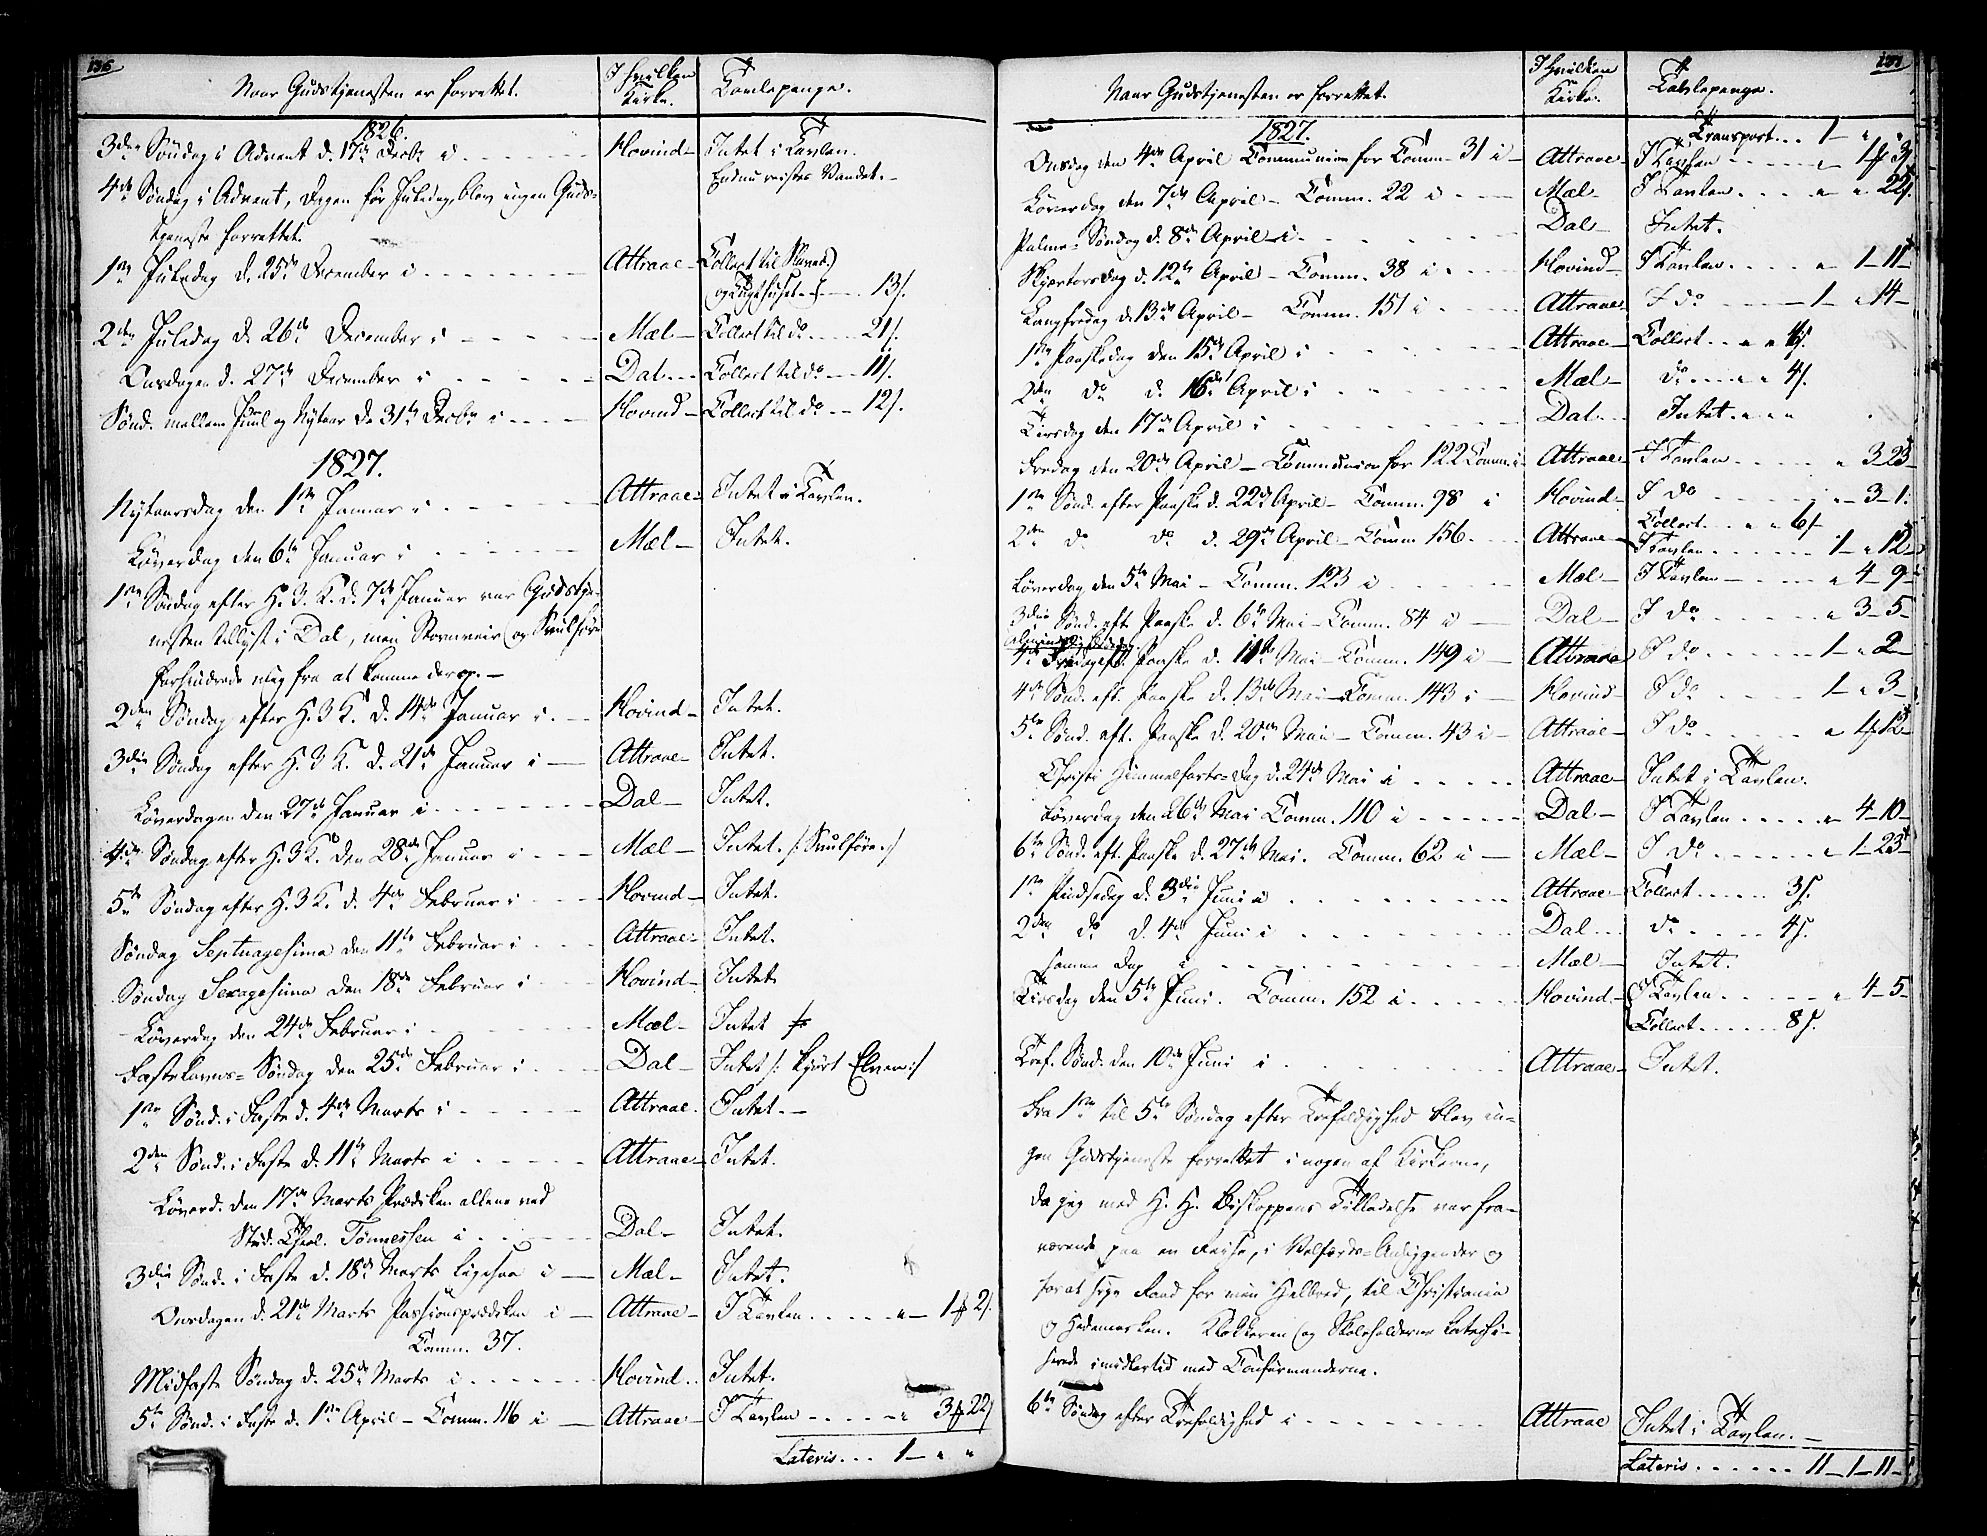 136
Naar Gudstjenesten er forrettet.
I hvilken Kirke.
Tavlepenge.
1826.
3die Søndag i Advent d. 17de Decbr i Hovind Intet i Tavlen.
4de Søndag i Advent, Dagen før Juledag, blev ingen Guds- Endnu Vandet.
tjeneste forrettet.
1ste Juledag d. 25de December i Attraae Collect til Slaveriet
og Tugthuset 13/.
2den Juledag d. 26de December i Mæl Collect til do 21/.
Onsdagen d. 27de December i Dal Collect til do 11/.
Sønd. mellem Juul og Nytaar d. 31te Decbr i Hovind Collect til do 12/.
1827.
Nytaarsdag den 1ste Januar i Attraae Intet i Tavlen.
Løverdag den 6te Januar i Mæl Intet.
1ste Søndag efter H. 3 K. d. 7de Januar var Gudstje-
nesten tillyst i Dal, men Stormveir og Snulføre
forhindrede mig fra at komme derop.
2den Søndag efter H. 3 K. d. 14de Januar i Hovind Intet.
3die Søndag efter H. 3 K. d. 21de Januar i Attraae Intet.
Løverdagen den 27de Januar i Dal Intet.
4de Søndag efter H. 3 K. den 28de Januar i Mæl Intet. /: Snulføre :/
5te Søndag efter H. 3 K. d. 4de Februar i Hovind Intet.
Søndag Septuagesima den 11te Februar i Attraae Intet.
Søndag Sexagesima den 18de Februar i Hovind Intet
Løverdag den 24de Februar i Mæl Intet
Fastelavns-Søndag den 25de Februar i Dal Intet /: kjørt Elven :/
1ste Sønd. i Faste d. 4de Marts i Attraae Intet.
2den Sønd. i Faste d. 11te Marts i Attraae Intet.
Løverd. den 17de Marts Prædiken allene ved
Stud. Theol. Tønnessen i Dal Intet.
3die Sønd. i Faste d. 18de Marts ligesaa i Mæl Intet.
Onsdagen d. 21de Marts Passionsprædiken i Attraae I Tavlen " 1 ff 2/.
Comm. 37.
Midfaste Søndag d. 25de Marts i Hovind Intet.
5te Sønd. i Faste d. 1ste April - Comm. 116 i Attraae I Tavlen " 3 ff 22/
Lateris... 1 " "
137
Naar Gudstjenesten er forrettet.
I hvilken Kirke.
Tavlepenge.
1827. Transport... 1 " "
Onsdag den 4de April Communion for Comm. 31 i Attraae I Tavlen " 1 ff 3/
Løverdag den 7de April - Comm. 22 i Mæl I Tavlen " " 22/.
Palme-Søndag d. 8de April i Dal Intet.
Skjærtorsdag d. 12te April - Comm. 38 i Hovind I Tavlen " 1 - 11
Langfredag d. 13de April - Comm. 151 i Attraae I do 1 " 14
1ste Paaskedag den 15de April i Attraae Collect
2den do d. 16de April i Mæl do 4/.
Tirsdag den 17de April i Dal Intet
Fredag den 20de April - Communion for 122 Comm. i Attraae I Tavlen " 3 23
1ste Sønd. efter Paaske d. 22de April - Comm. 98 i Hovind I do " 3 - 1.
Collect 6/
2den do do d. 29de April - Comm. 156 Attraae I Tavlen 1 " 12
Løverdag den 5te Mai - Comm. 123 i Mæl I Tavlen " 4 - 9
3die Sønd. eft. Paaske d. 6te Mai - Comm. 84 i Dal I do " 3 - 5
almindelig Bededag
4de Fredag eft. Paaske d. 11te Mai - Comm. 149 i Attraae I do 1 " 2
4de Sønd. eft. Paaske d. 13de Mai - Comm. 143 i Hovind I do 1 " 3
5te Sønd. eft. Paaske d. 20de Mai - Comm. 43 i Attraae I do " 4 12
Christi Himmelfarts-Dag d. 24de Mai i Attraae Intet i Tavlen.
Løverdag den 26de Mai Comm. 110 i Dal I Tavlen " 4 - 10
6te Sønd. eft. Paaske d. 27de Mai. Comm. 62 i Mæl I do " 1 - 23
1ste Pindsedag d. 3die Juni i Attraae Collect 3/.
2den do d. 4de Juni i Dal do 4/.
samme Dag i Mæl Intet.
Tirsdag den 5te Juni. Comm. 152 i Hovind I Tavlen " 4 - 5
Collect 8/.
Tref. Sønd. den 10de Juni i Attraae Intet.
Fra 1ste til 5te Søndag efter Trefoldighed blev in-
gen Gudstjeneste forrettet i nogen af Kirkerne,
da jeg med H. H. Biskoppens Tilladelse var fra-
værende paa en Reise, i Velfærds-Anliggender og
for at søge Raad for min Helbred, til Christiania
og Hedemarken. Klokkeren og Skoleholderne katechi-
serede imidlertid med Confirmanderne.
6te Søndag efter Trefoldighed i Attraae Intet i Tavlen.
Lateris 11 - 1 - 11